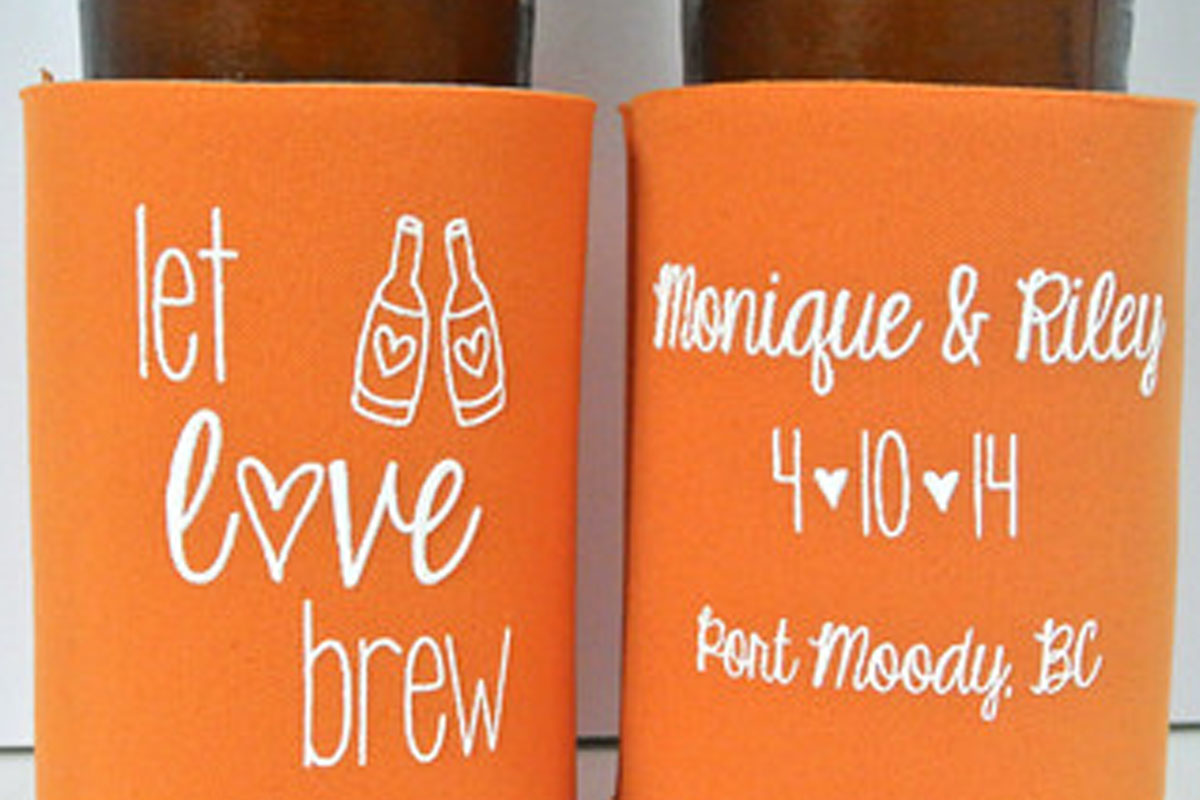 let
love
brew
Monique & Riley
4♥10♥14
Port Moody, BC